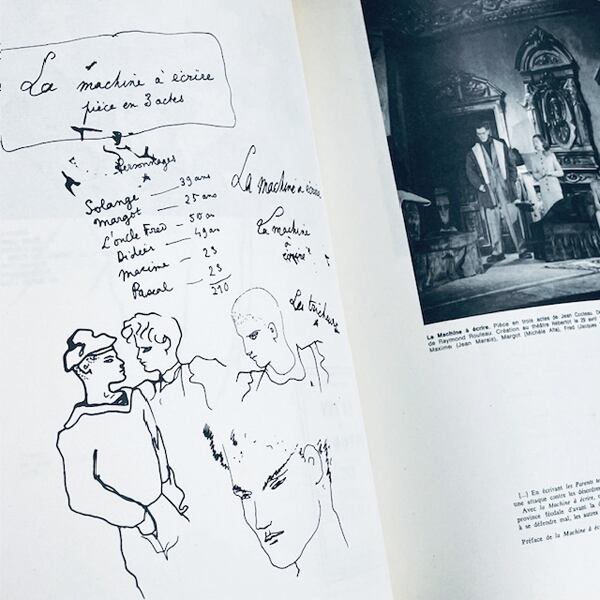 La machine à écrire
pièce en 3 actes
Personnages
Solange — 39 ans
Margot — 25 ans
L'oncle Fred — 50 a
Didier — 49 ans
Maxime — 23
Pascal — 23
210
La machine à écrire
La machine
à
écrire
La Machine à écrire. Pièce en trois actes de Jean Cocteau
de Raymond Rouleau. Création au théâtre Hébertot le 29 avril
Maxime (Jean Marais), Margot (Michèle Alfa), Fred (Jacques
[...] En écrivant les Parents
une attaque contre les désordres
Avec la Machine à écrire,
province féodale d'avant la
à se défendre mal, les autres
Préface de la Machine à